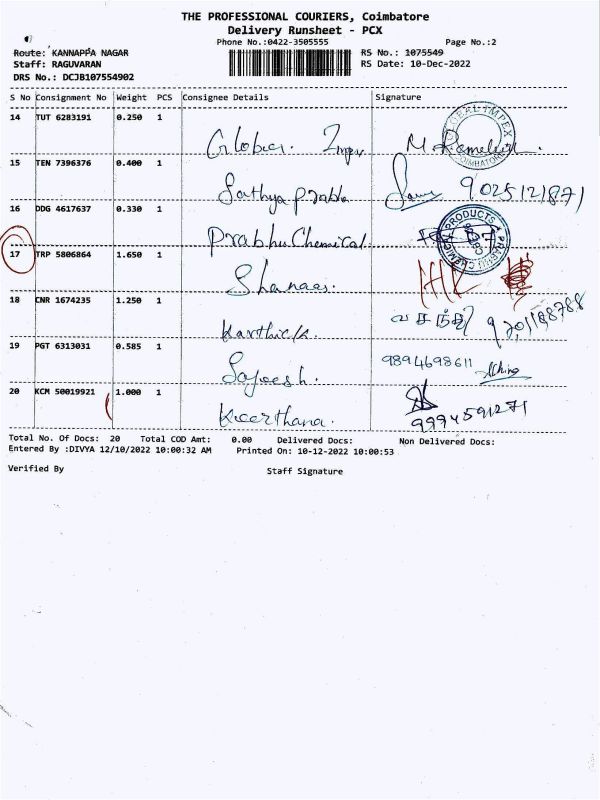 THE PROFESSIONAL COURIERS, Coimbatore
Delivery Runsheet - PCX
Phone No.:0422-3505555 Page No.:2
Route: KANNAPPA NAGAR RS No.: 1075549
Staff: RAGUVARAN RS Date: 10-Dec-2022
DRS No.: DCJB107554902
S No Consignment No Weight PCS Consignee Details Signature
14 TUT 6283191 0.250 1
Global Impex M. Rameksh.
GLOBAL IMPEX
COIMBATORE
15 TEN 7396376 0.400 1
Sathya Prabha 9025121871
16 DDG 4617637 0.330 1
Prabhu Chemical
PRABHU CHEMICAL PRODUCTS
17 TRP 5806864 1.650 1
Shanaas.
18 CNR 1674235 1.250 1
Karthick வசந்தி
19 PGT 6313031 0.585 1
Sajeesh. 9894698611
20 KCM 50019921 1.000 1
Keerthana. 9994591271
Total No. Of Docs: 20 Total COD Amt: 0.00 Delivered Docs: Non Delivered Docs:
Entered By :DIVYA 12/10/2022 10:00:32 AM Printed On: 10-12-2022 10:00:53
Verified By Staff Signature